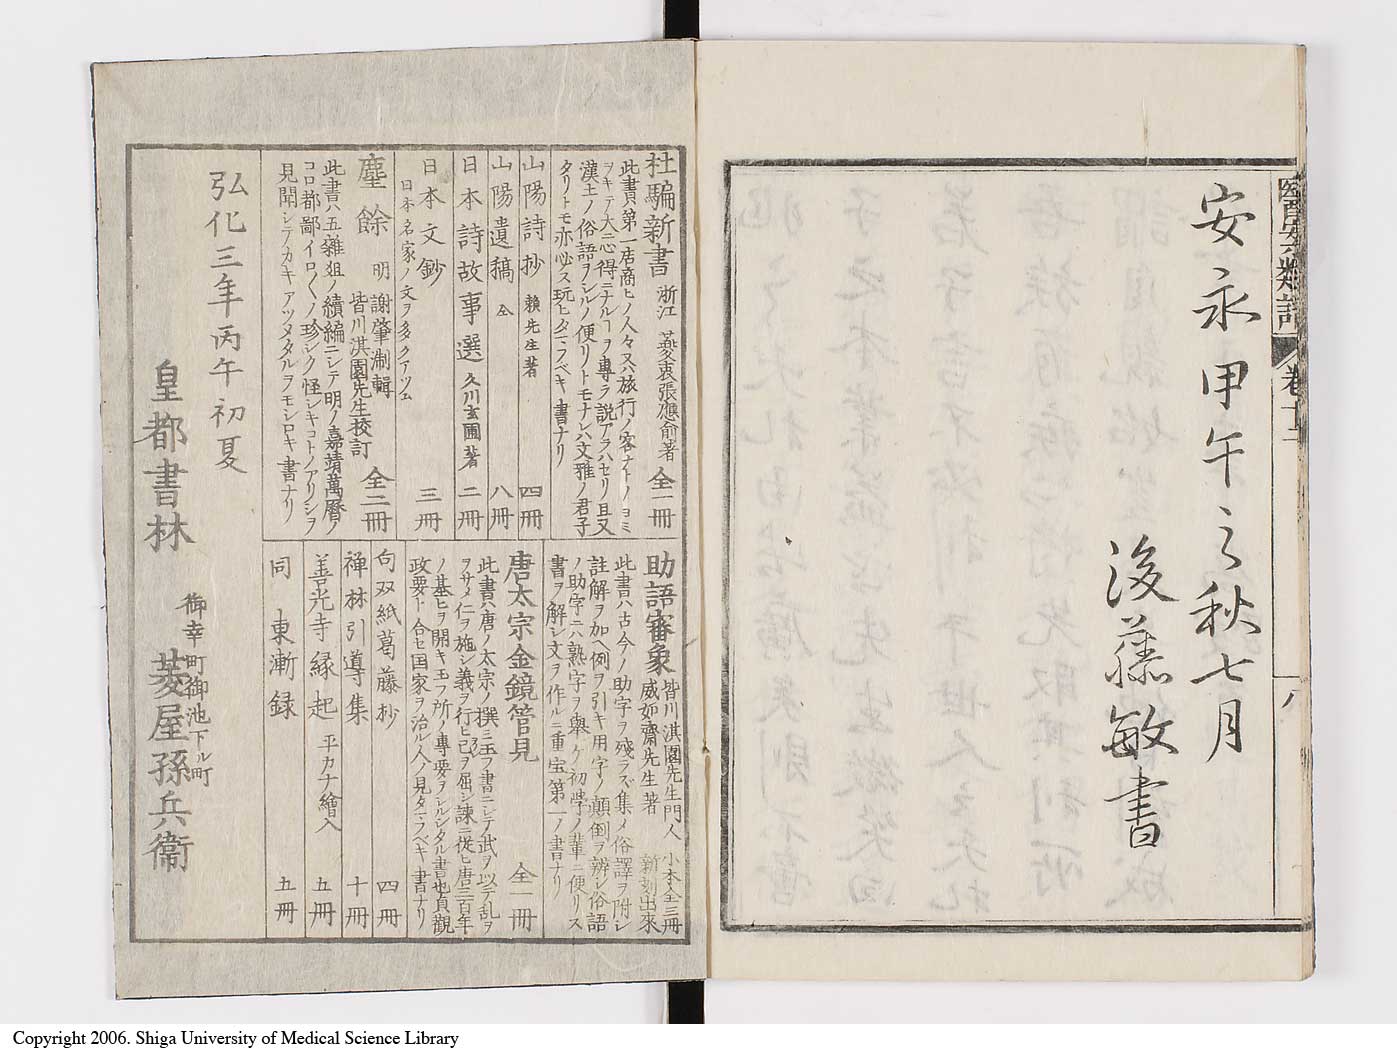 安永甲午之秋七月
後藤敏書
醫案類語
卷十二
八
杜騙新書 浙江 夔衷張應俞著 全一冊
此書ハ第一店商ヒノ人々又ハ旅行ノ客ナトノヨミ
ヲキテ大ニ心得ニナルヿヲ專ラ説アラハセリ且又
漢土ノ俗語ヲシルノ便リトモナレハ文雅ノ君子
タリトモ亦必ス玩ヒタマフベキ書ナリ
山陽詩抄 賴先生著 四冊
山陽遺稿 仝 八冊
日本詩故事選 久川玄圃著 二冊
日本文鈔 三冊
日本名家ノ文ヲ多クアツム
塵餘 明 謝肇淛輯 皆川淇園先生校訂 全二冊
此書ハ五雜俎ノ續編ニシテ明ノ嘉靖萬曆ノ
コロ都鄙イロ〱ノ珍シク怪シキコトノアリシヲ
見聞シテカキアツメタルヲモシロキ書ナリ
助語審象 皆川淇園先生門人 威如齋先生著 小本全三冊 新刻出來
此書ハ古今ノ助字ヲ殘ラズ集メ俗譯ヲ附シ
註解ヲ加ヘ例ヲ引キ用字ノ顛倒ヲ辨シ俗語
ノ助字ニハ熟字ヲ舉ケ初學ノ輩ニ便リス
書ヲ解シ文ヲ作ルニ重宝第一ノ書ナリ
唐太宗金鏡管見 全一冊
此書ハ唐ノ太宗ノ撰ミ玉フ書ニシテ武ヲ以テ乱ヲ
ヲサメ仁ヲ施シ義ヲ行ヒ己ヲ屈シ諫ニ従ヒ唐三百年
ノ基ヒヲ開キ玉フ所ノ專要ヲシルシタル書也貞觀
政要ト合セ国家ヲ治ル人ノ見タマフベキ書ナリ
句双紙葛藤抄 四冊
禅林引導集 十冊
善光寺縁起 平カナ繪入 五冊
同 東漸録 五冊
弘化三年丙午初夏
皇都書林
御幸町御池下ル町
菱屋孫兵衞
Copyright 2006. Shiga University of Medical Science Library